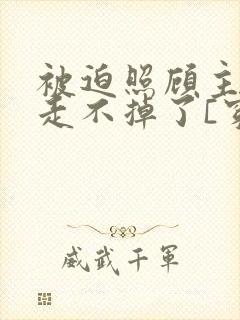 被迫照顾主
走不掉了[穿
威武千軍